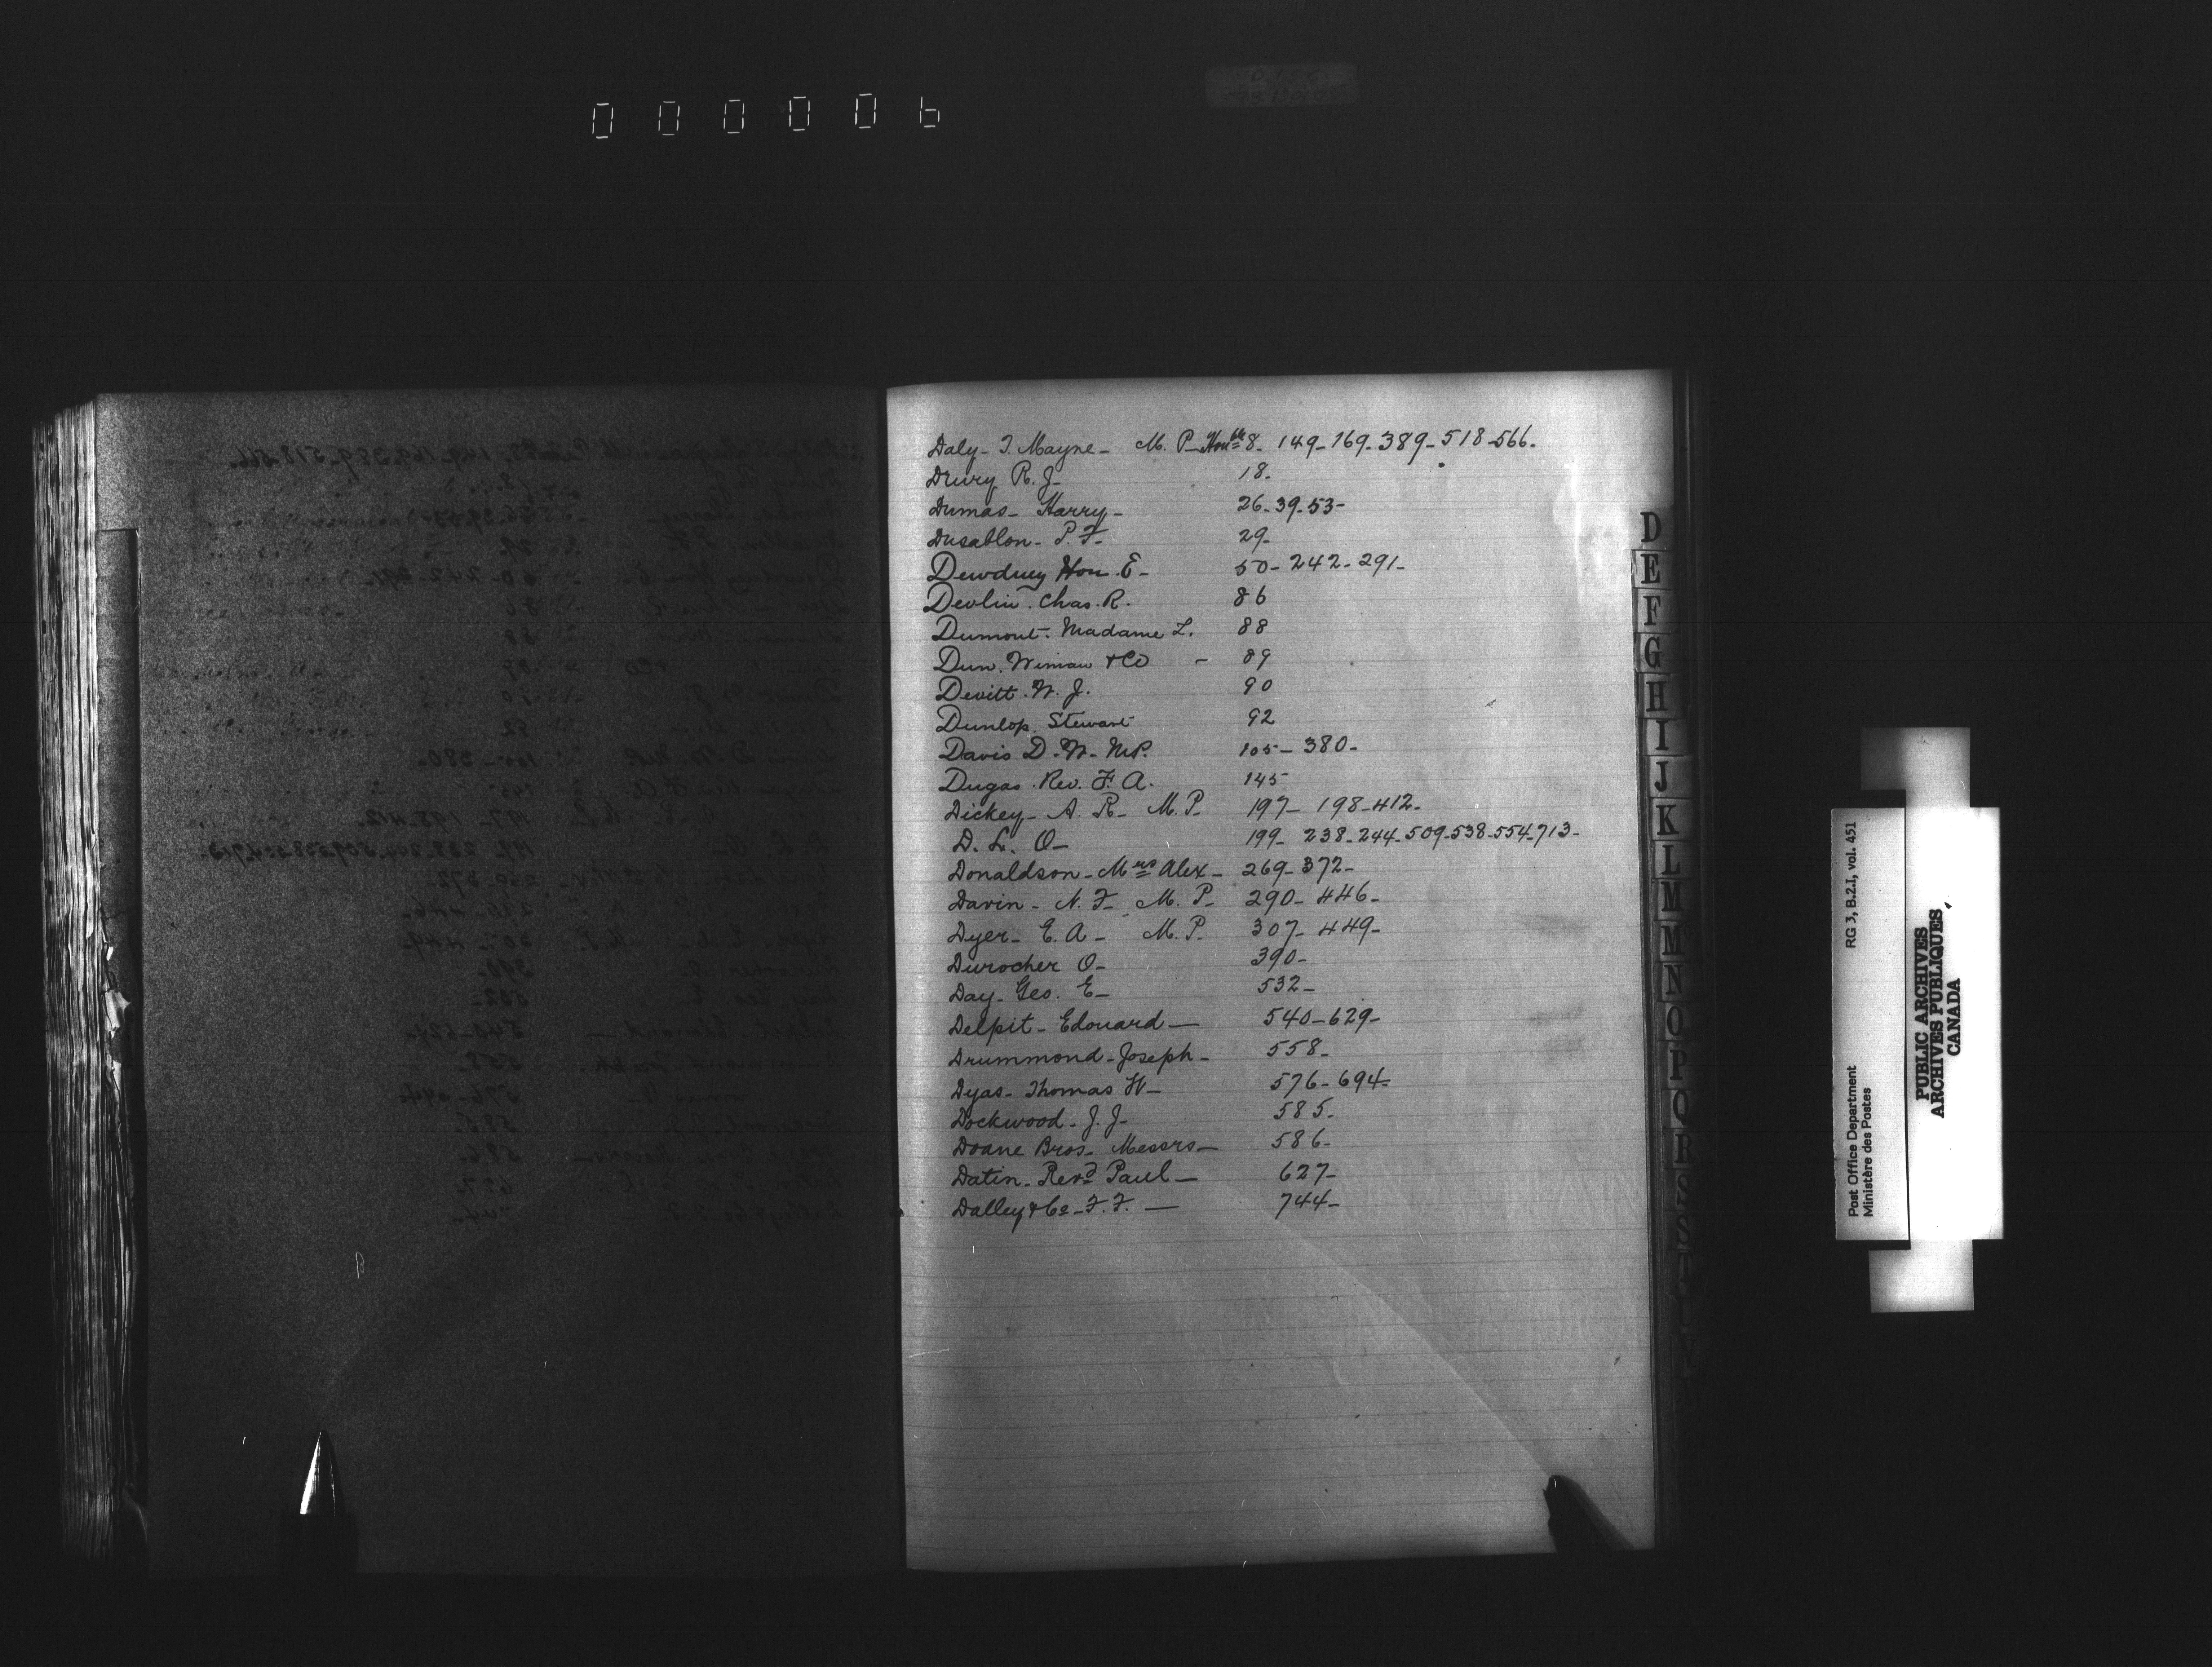 000006
Daly - T. Mayne - M. P. - Honble 8. 149 - 169 - 389 - 518 - 566 -
Drury R. J - 18 -
Dumas - Harry - 26 - 39 - 53 -
Dusablon - P. F - 29 -
Dewdney Hon. E - 50 - 242 - 291 -
Devlin. Chas. R. 86
Dumont. Madame L. 88
Dun. Wiman & Co - 89
Devitt. W. J. 90
Dunlop. Stewart 92
Davis D. W. MP. 105 - 380 -
Dugas. Rev. F. A. 145
Dickey - A. R - M. P. 197 - 198 - 412 -
D. L. O - 199 - 238 - 244 - 509 - 538 - 554 - 713 -
Donaldson - Mrs Alex - 269 - 372 -
Davin - N. F - M. P - 290 - 446 -
Dyer - E. A - M. P. 307 - 449 -
Durocher O - 390 -
Day - Geo. E - 532 -
Delpit - Edouard - 540 - 629 -
Drummond - Joseph - 558 -
Dyas - Thomas W - 576 - 694 -
Dockwood - J. J - 585 -
Doane Bros - Messrs - 586 -
Datin - Revd Paul - 627 -
Dalley & Co - F. F. - 744 -
D
E
F
G
H
I
J
K
L
M
N
O
P
Q
R
S
Post Office Department RG 3, B.2.I, vol. 451
Ministère des Postes
PUBLIC ARCHIVES
ARCHIVES PUBLIQUES
CANADA